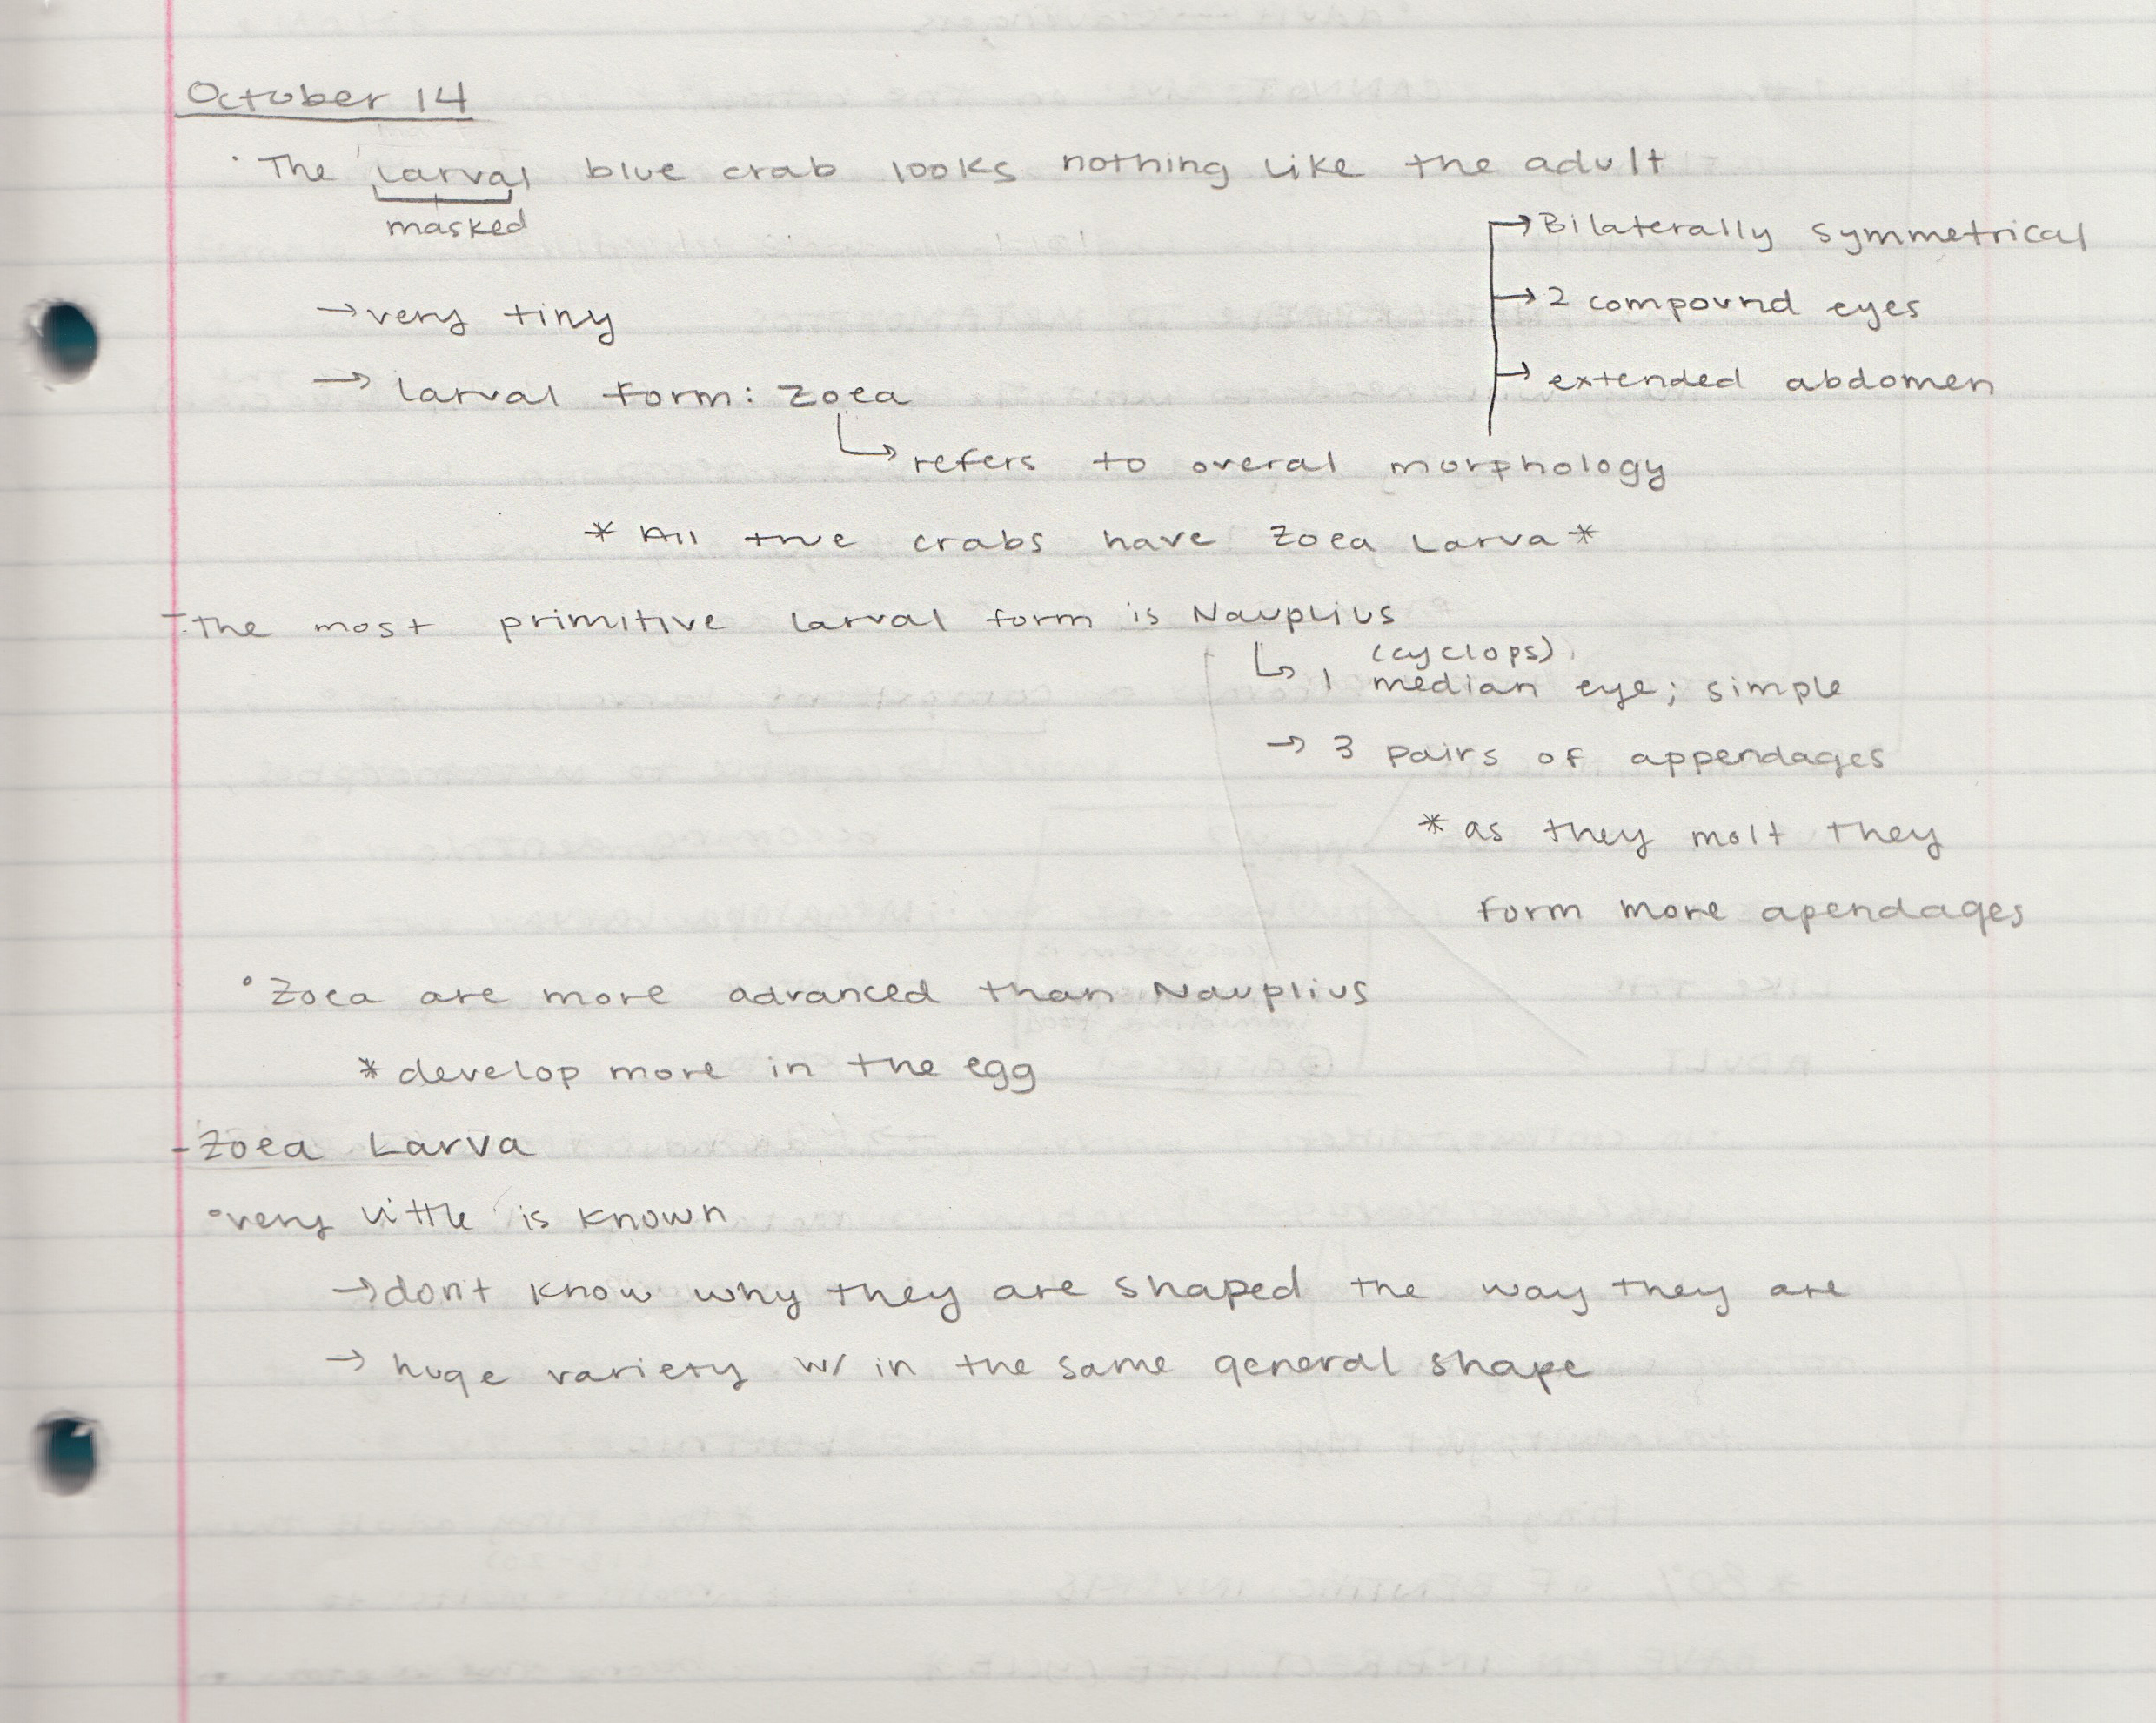 October 14
• The larval blue crab looks nothing like the adult
masked
→ Bilaterally symmetrical
→ very tiny
→ 2 compound eyes
→ larval form: Zoea
→ extended abdomen
↳ refers to overal morphology
* All true crabs have Zoea Larva *
- The most primitive larval form is Nauplius
(cyclops)
↳ 1 median eye; simple
→ 3 pairs of appendages
* as they molt they
form more apendages
° Zoea are more advanced than Nauplius
* develop more in the egg
- Zoea Larva
° very little is known
→ don't know why they are shaped the way they are
→ huge variety w/ in the same general shape